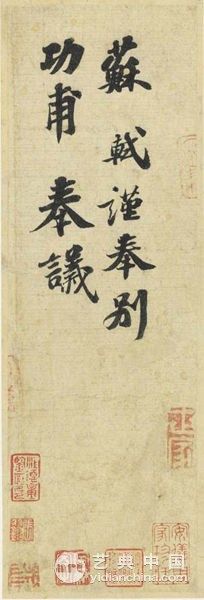 蘇 軾謹奉別
功甫 奉議
艺典中国
yidianchina.com